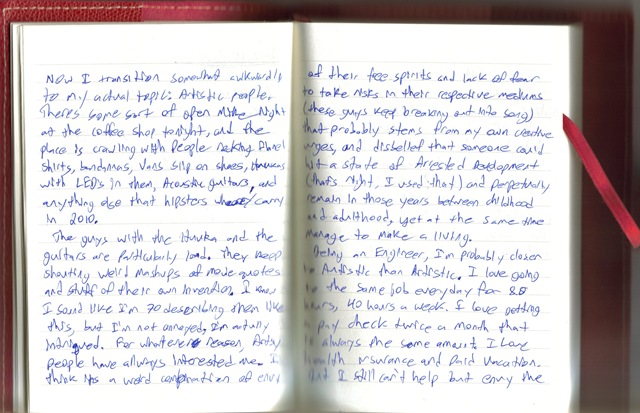 Now I transition somewhat awkwardly
to my actual topic: Artistic people.
There's some sort of open Mike Night
at the coffee shop tonight, and the
place is crawling with people flannel
shirts, bandannas, Vans slip on shoes,
with LEDs in them, Acoustic guitars, and
anything else that hipsters carry
in 2010.
The guys with the and the
guitars are particularly loud. They keep
shouting weird mashups of movie quotes
and stuff of their own invention. I know
I sound like I'm 70 describing them like
this, but I'm not annoyed, I'm actually
intrigued. For whatever reason, Artsy
people have always interested me. I
think its a weird combination of envy
of their free spirits and lack of fear
to take risks in their respective mediums
(these guys keep breaking out into song)
that probably stems from my own creative
urges, and disbelief that someone could
hit a state of Arrested Development
(that's right, I used that) and perpetually
remain in those years between childhood
and adulthood, yet at the same time
manage to make a living.
Being an Engineer, I'm probably closer
to Autistic than Artistic. I love going
to the same job everyday for 8.0
hours, 40 hours a week. I love getting
a pay check twice a month that
is always the same amount. I love
health insurance and paid vacation.
But I still can't help but envy the